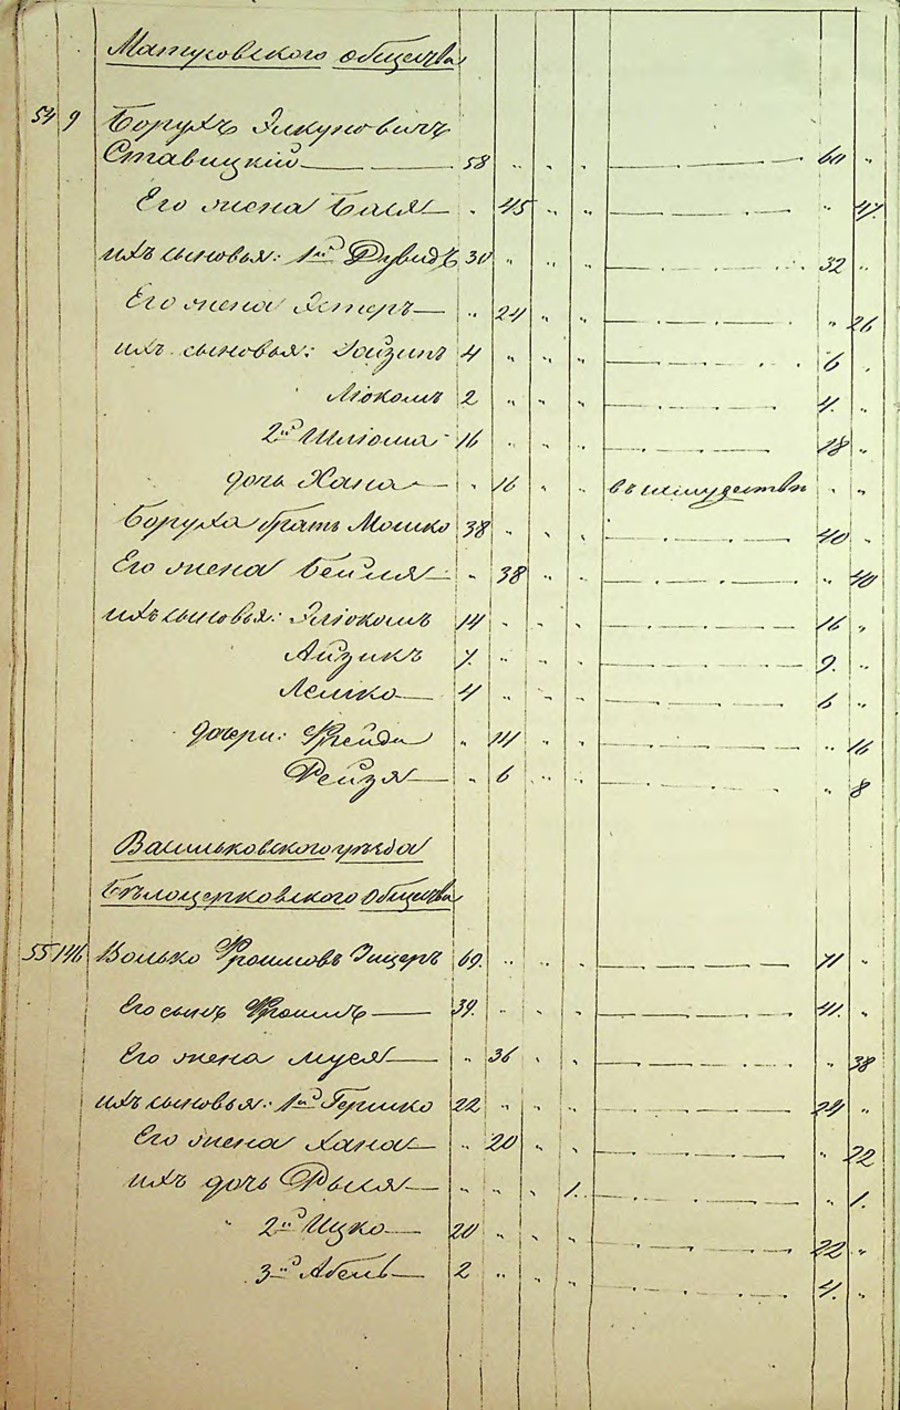 Матусовского общества
54 9 Борухъ Элкуновичъ
Ставицкій 58 " " " 60 "
Его жена Бася " 45 " " " 47.
ихъ сыновья: 1й Дувидъ 30 " " " 32 "
Его жена Эстеръ " 24 " " " 26
ихъ сыновья: 4 " " " 6 "
Люкомъ 2 " " " 4. "
2й Шліома 16 " " " 18 "
дочь Хана " 16 " " въ замужествѣ " "
Боруха братъ Мошко 38 " " " 40 "
Его жена Бейля " 38 " " " 40
ихъ сыновья: Эліокомъ 14 " " " 16 "
Айзикъ 7. " " " 9. "
Лейко 4 " " " 6 "
дочери: Фрейда " 14 " " " 16
Рейзя " 6 " " " 8
Васильковского уѣзда
Бѣлоцерковского общества
55 146 Волько Фроимовъ 69. " " " 71 "
Его сынъ Фроимъ 39. " " " 41. "
Его жена Муся " 36 " " " 38
ихъ сыновья: 1й Гершко 22 " " " 24 "
Его жена Хана " 20 " " " 22
ихъ дочь Рыся " " " 1. " 1.
2й Ицко 20 " " " 22 "
3й Абель 2 " " " 4. "